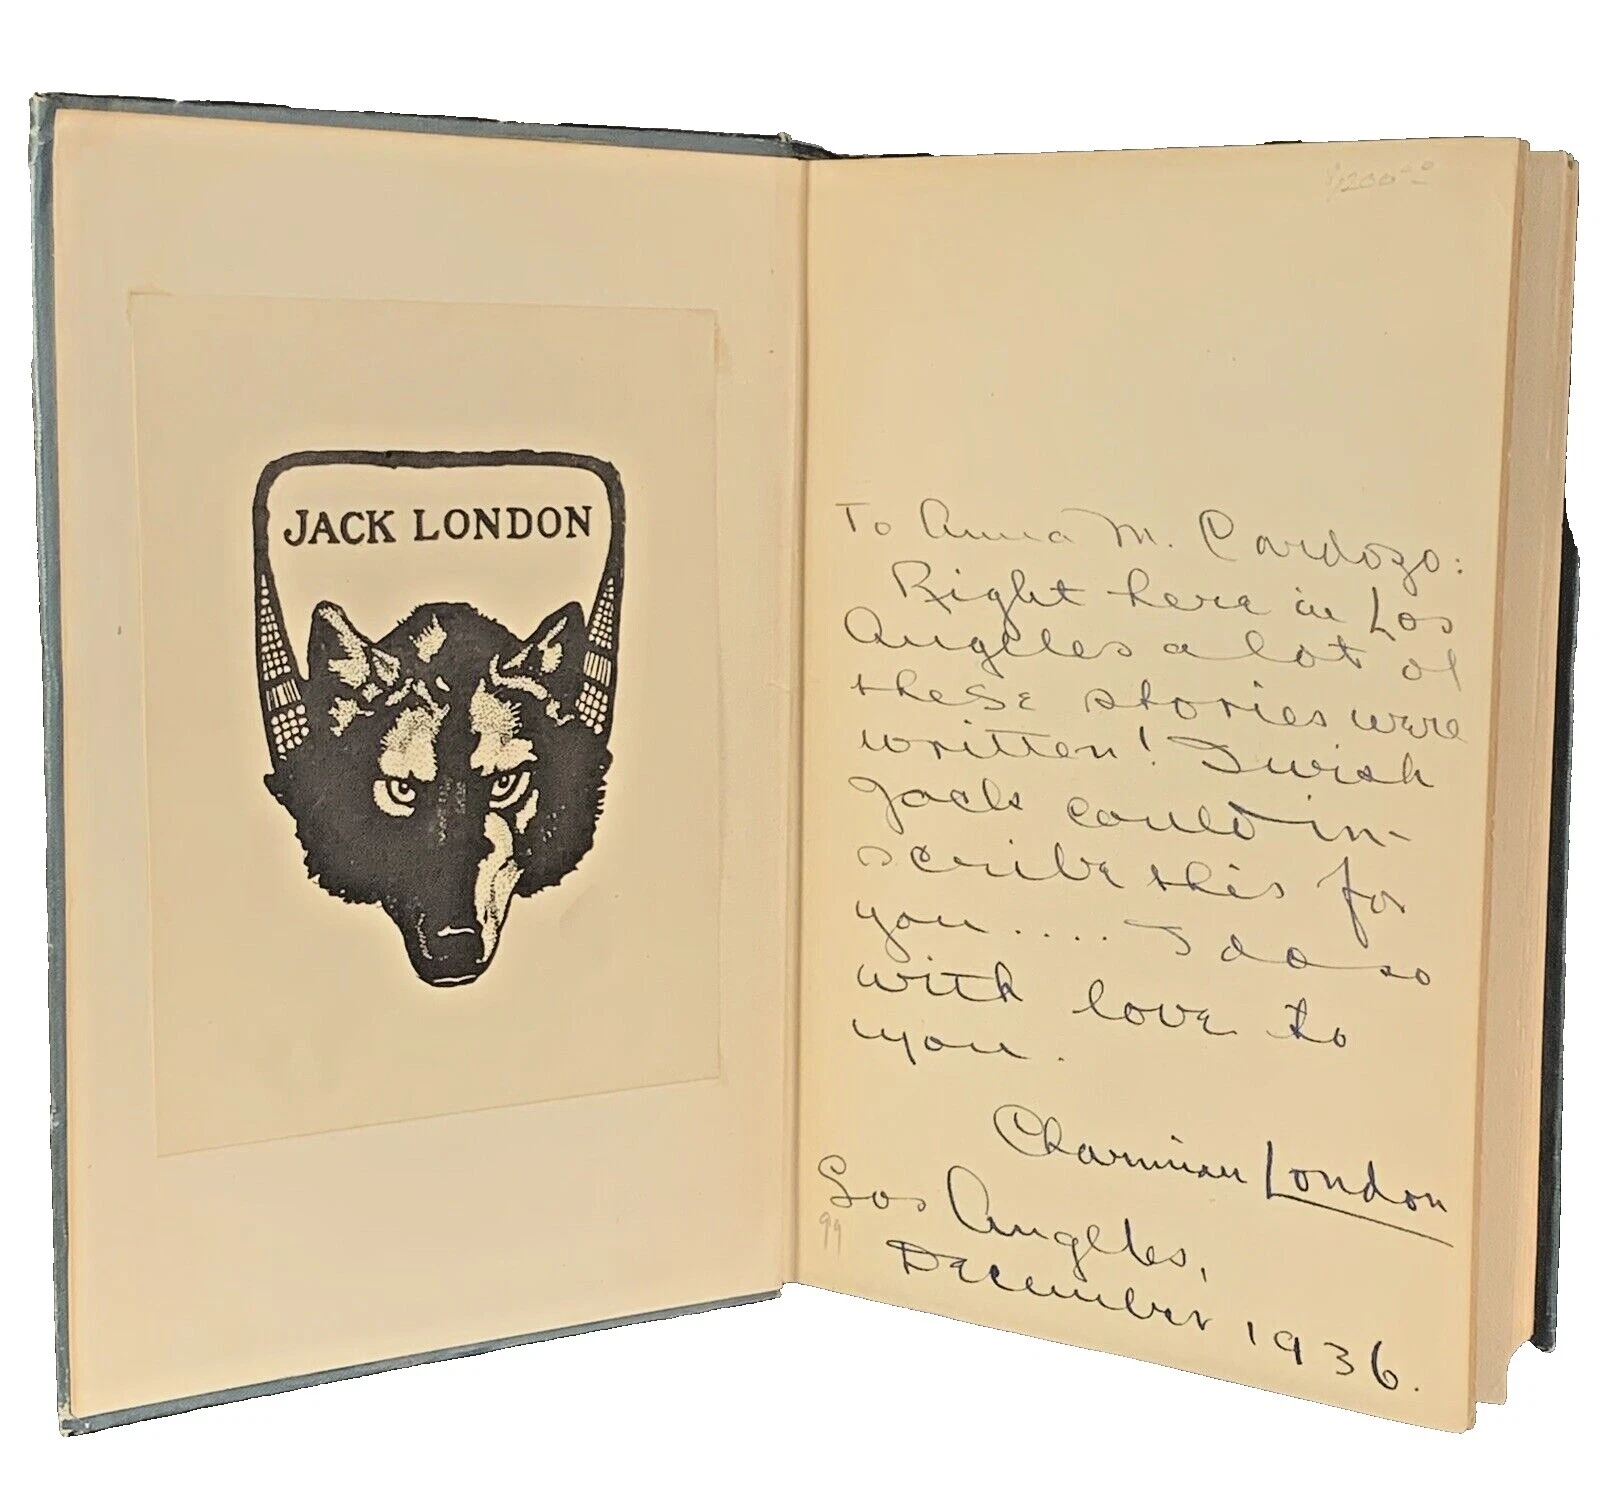 JACK LONDON
$1200.00
To Anna M. Cardozo:
Right here in Los
Angeles a lot of
these stories were
written! I wish
Jack could in-
scribe this for
you.... I do so
with love to
you.
Charmian London
Los Angeles,
99
December, 1936.